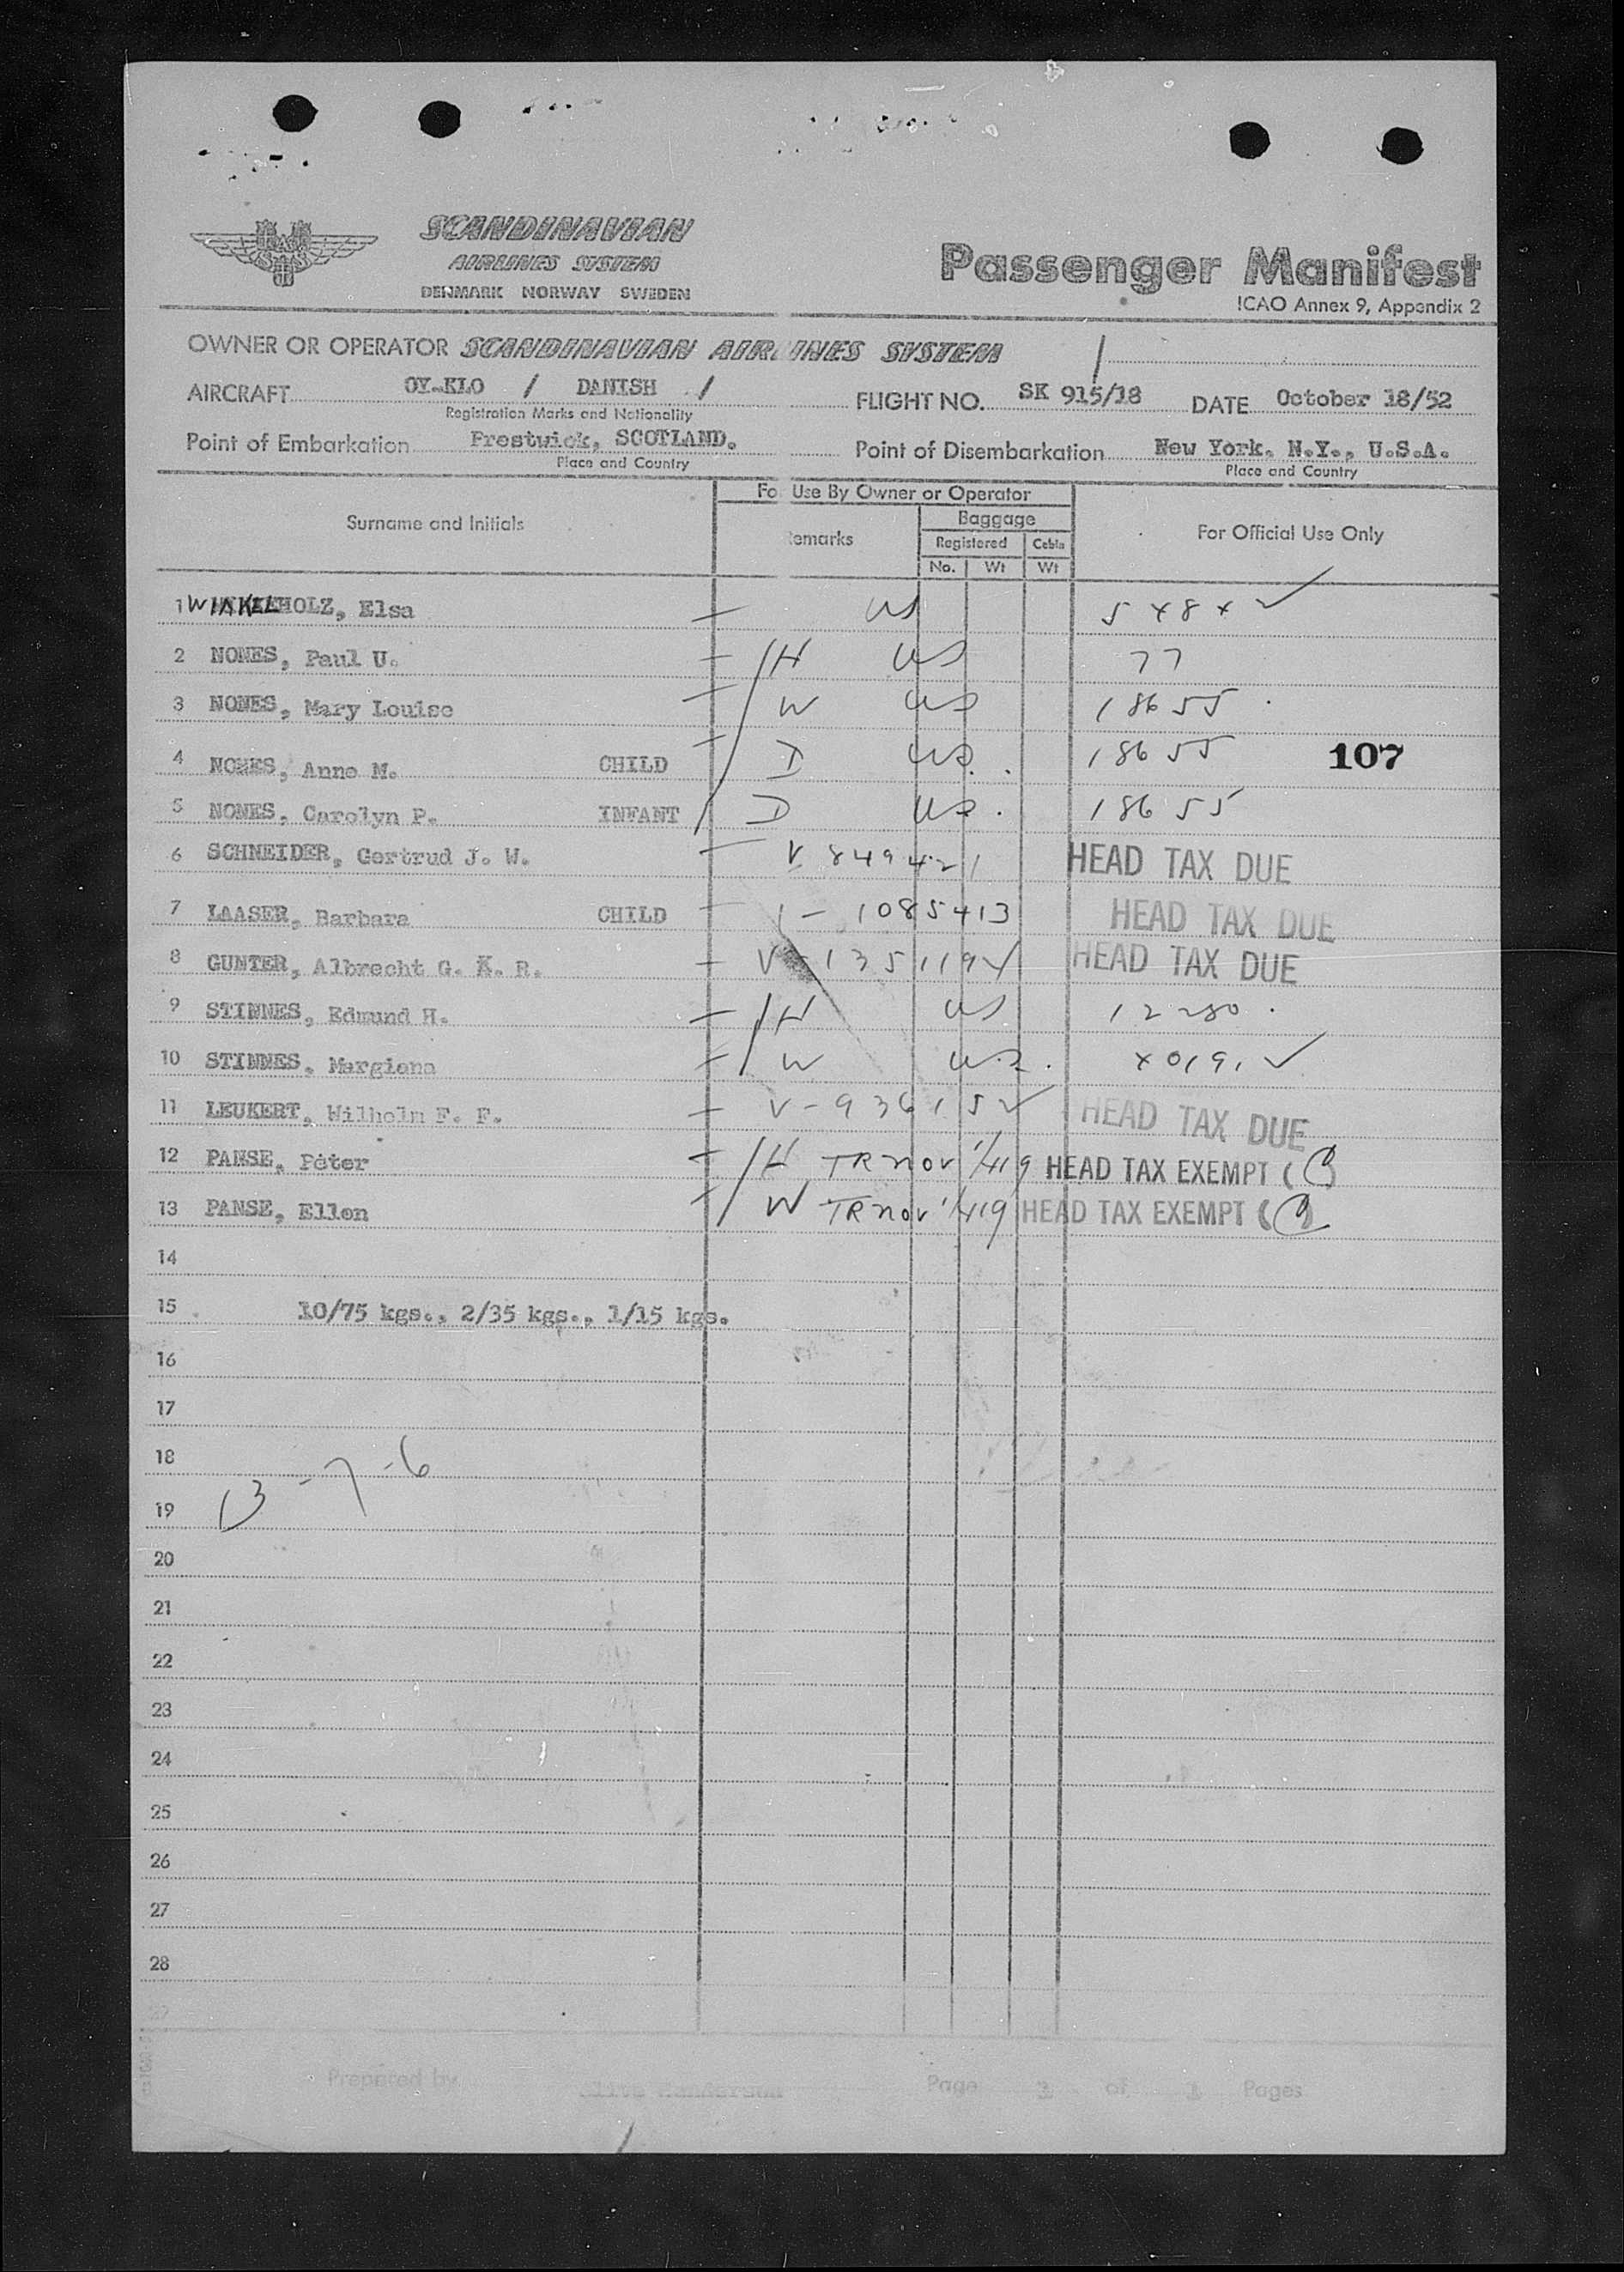 SCANDINAVIAN
AIRLINES SYSTEM
DENMARK NORWAY SWEDEN
Passenger Manifest
ICAO Annex 9, Appendix 2
OWNER OR OPERATOR SCANDINAVIAN AIRLINES SYSTEM
AIRCRAFT OY-KLO / DANISH / FLIGHT NO. SK 915/18 DATE October 18/52
Registration Marks and Nationality
Point of Embarkation Prestwick, SCOTLAND. Point of Disembarkation New York, N.Y., U.S.A.
Place and Country Place and Country
For Use By Owner or Operator
Surname and Initials Remarks Baggage For Official Use Only
Registered Cabin
No. Wt Wt
1 WINKELHOLZ, Elsa US
2 NONES, Paul U. H US 77
3 NONES, Mary Louise W US 18655
4 NONES, Anne M. CHILD D US. 18655 107
5 NONES, Carolyn P. INFANT D US. 18655
6 SCHNEIDER, Gertrud J. W. V 849421 HEAD TAX DUE
7 LAASER, Barbara CHILD 1085413 HEAD TAX DUE
8 GUNTER, Albrecht G. K. R. HEAD TAX DUE
9 STINNES, Edmund H. H US 12280
10 STINNES, Margiana W US.
11 LEUKERT, Wilhelm F. F. V-936152 HEAD TAX DUE
12 PANSE, Peter H TR nov HEAD TAX EXEMPT
13 PANSE, Ellen W TR nov HEAD TAX EXEMPT
14
15 10/75 kgs., 2/35 kgs., 1/15 kgs.
16
17
18
13-7-6
19
20
21
22
23
24
25
26
27
28
Prepared by Page of 1 Pages